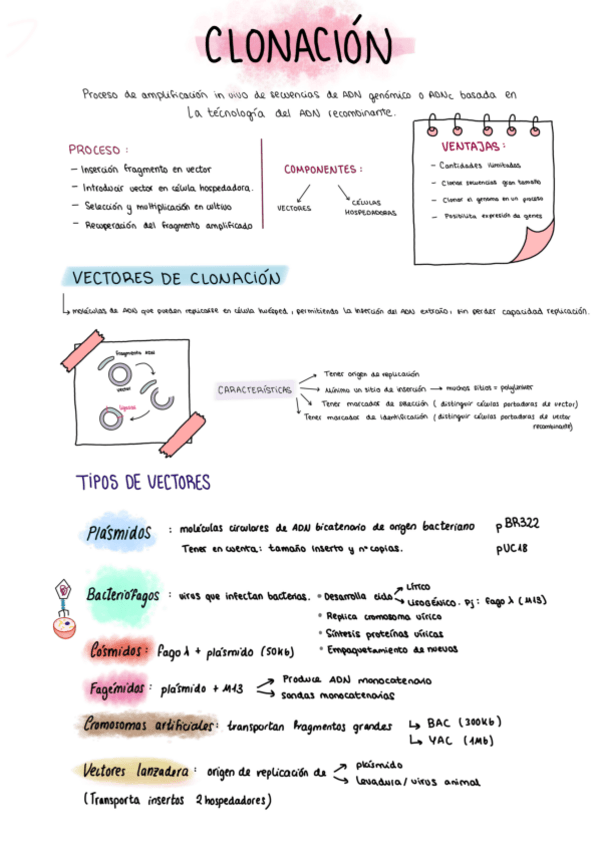 CLONACIÓN
Proceso de amplificación in vivo de secuencias de ADN genómico o ADNc basada en
La técnología del ADN recombinante.
PROCESO :
- Inserción fragmento en vector
- Introducir vector en célula hospedadora.
- Selección y multiplicación en cultivo
- Recuperación del fragmento amplificado
COMPONENTES :
VECTORES
CÉLULAS
HOSPEDADORAS
VENTAJAS :
- Cantidades ilimitadas
- Clonar secuencias gran tamaño
- Clonar el genoma en un proceso
- Posibilita expresión de genes
VECTORES DE CLONACIÓN
moléculas de ADN que pueden replicarse en célula huésped, permitiendo la inserción del ADN extraño, sin perder capacidad replicación.
Fragmento ADN
vector
Ligasa
CARACTERÍSTICAS
Tener origen de replicación
Mínimo un sitio de inserción → muchos sitios = polylinker
Tener marcador de selección ( distinguir células portadoras de vector)
Tener marcador de identificación ( distinguir células portadoras de vector
recombinante)
TIPOS DE VECTORES
Plásmidos : moléculas circulares de ADN bicatenario de origen bacteriano pBR322
Tener en cuenta: tamaño inserto y nº copias. pUC18
Bacteriófagos : virus que infectan bacterias. • Desarrolla ciclo
Lítico
Lisogénico. Pj: fago λ (M13)
• Replica cromosoma vírico
• Síntesis proteínas víricas
• Empaquetamiento de nuevos
Cósmidos: fago λ + plásmido (50Kb)
Fagémidos: plásmido + M13
Produce ADN monocatenario
sondas monocatenarias
Cromosomas artificiales: transportan fragmentos grandes ↳ BAC (300Kb)
↳ YAC (1Mb)
Vectores lanzadera: origen de replicación de
plásmido
levadura/ virus animal
(Transporta insertos 2 hospedadores)